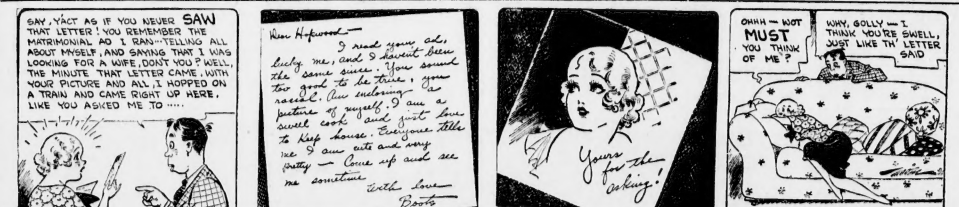 SAY, Y'ACT AS IF YOU NEVER SAW
THAT LETTER! YOU REMEMBER THE
MATRIMONIAL AD I RAN--TELLING ALL
ABOUT MYSELF, AND SAYING THAT I WAS
LOOKING FOR A WIFE, DON'T YOU? WELL,
THE MINUTE THAT LETTER CAME, WITH
YOUR PICTURE AND ALL, I HOPPED ON
A TRAIN AND CAME RIGHT UP HERE,
LIKE YOU ASKED ME TO .....
Dear Hopwood—
I read your ad,
lucky me, and I haven't been
the same since. You sound
too good to be true, you
rascal. Am enclosing a
picture of myself. I am a
sweet cook and just love
to keep house. Everyone tells
me I am cute and very
pretty — Come up and see
me sometime
With love
Boots
Yours
for the
asking!
OHHH — WOT
MUST
YOU THINK
OF ME?
WHY, GOLLY — I
THINK YOU'RE SWELL,
JUST LIKE TH' LETTER
SAID
MARTIN